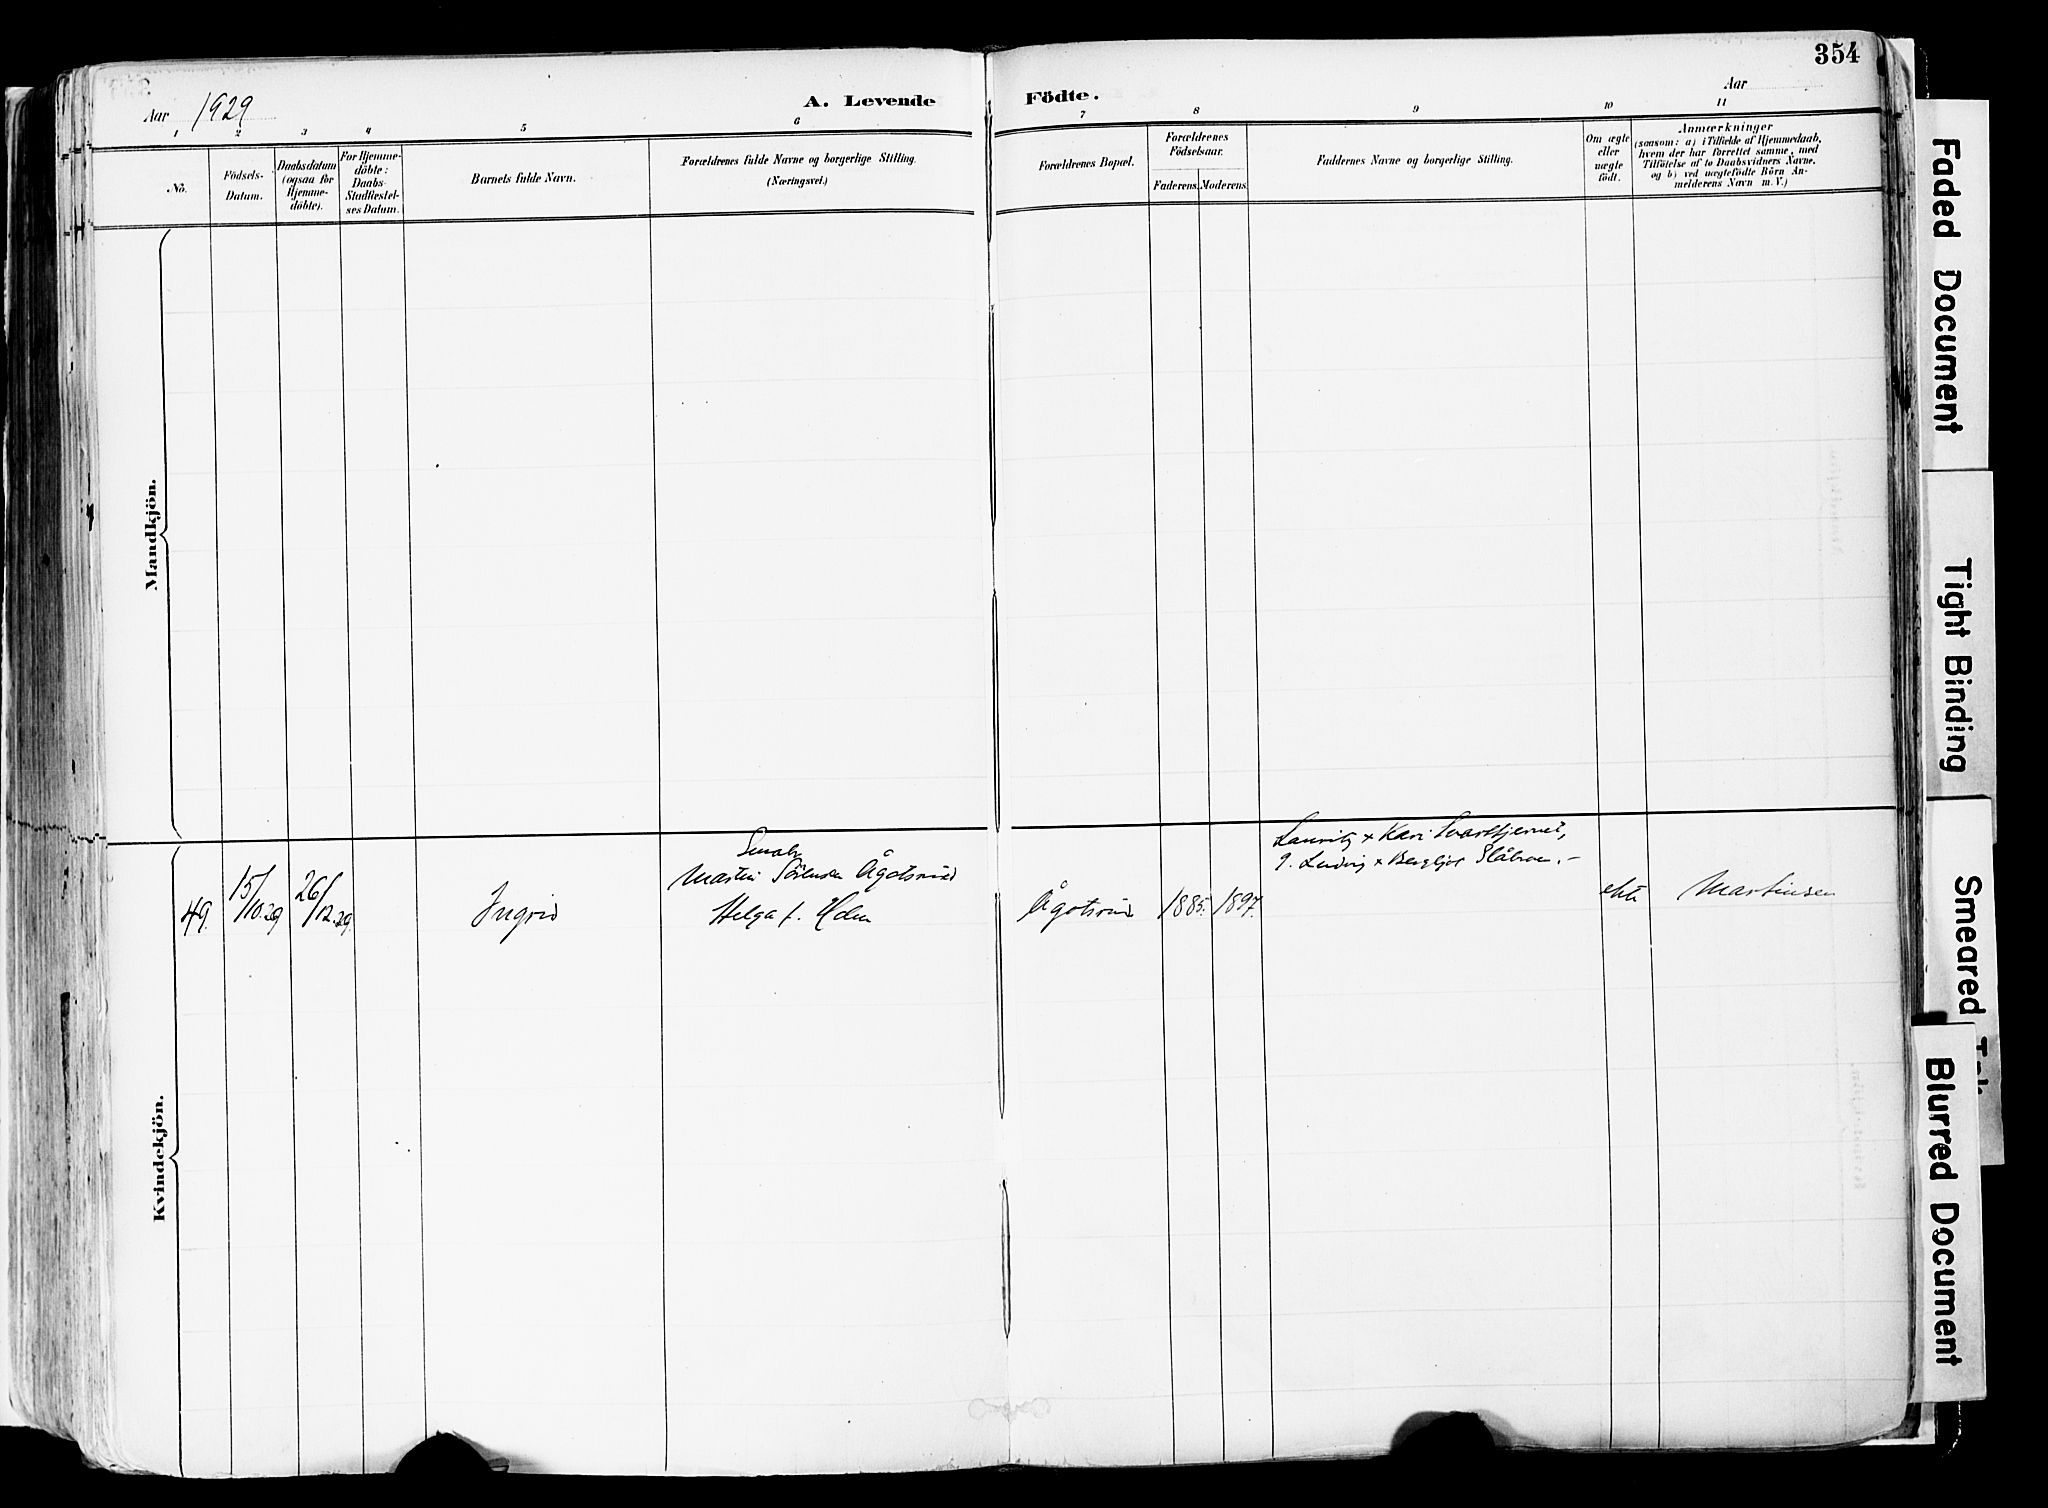 354
Aar 1929
A. Levende Födte.
Aar
1 2 3 4 5 6 7 8 9 10 11
No.
Födsels-
Datum.
Daabsdatum
(ogsaa for
Hjemme-
döbte).
For Hjemme-
döbte:
Daabs-
Stadfæstel-
ses Datum.
Barnets fulde Navn.
Forældrenes fulde Navne og borgerlige Stilling.
(Næringsvei.)
Forældrenes Bopæl.
Forældrenes
Födselsaar.
Faderens. Moderens.
Faddernes Navne og borgerlige Stilling.
Om ægte
eller
uægte
födt.
Anmærkninger
(saasom: a) i Tilfælde af Hjemmedaab,
hvem der har forrettet samme, med
Tilföielse af to Daabsvidners Navne,
og b) ved uægtefödte Börn An-
melderens Navn m. V.)
Mandkjön.
Kvindekjön.
49.
15/10.29
26/12.29.
Ingrid
Martin Sörensen Ågotsrud
Helga f.
Ågotsrud
1885.
1897.
Lauritz + Kari Svarttjernet,
g. Ludvig + Bergljot
ekte
Martinsen
Faded Document
Tight Binding
Smeared
Blurred Document